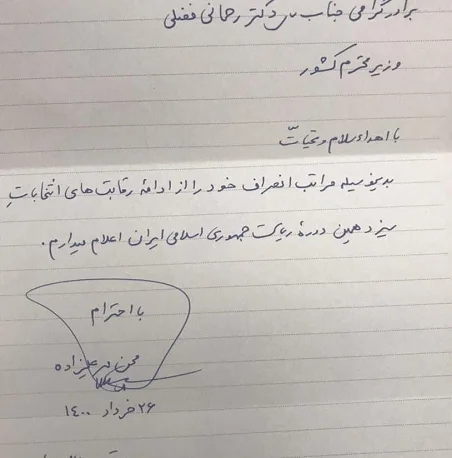 برادر گرامی جناب آقای دکتر رحمانی فضلی
وزیر محترم کشور
با اهداء سلام و تحیّات
بدینوسیله مراتب انصراف خود را از ادامهٔ رقابت‌های انتخاباتِ
سیزدهمین دورهٔ ریاست جمهوری اسلامی ایران اعلام میدارم.
با احترام
محسن مهرعلیزاده
۲۶ خرداد ۱۴۰۰